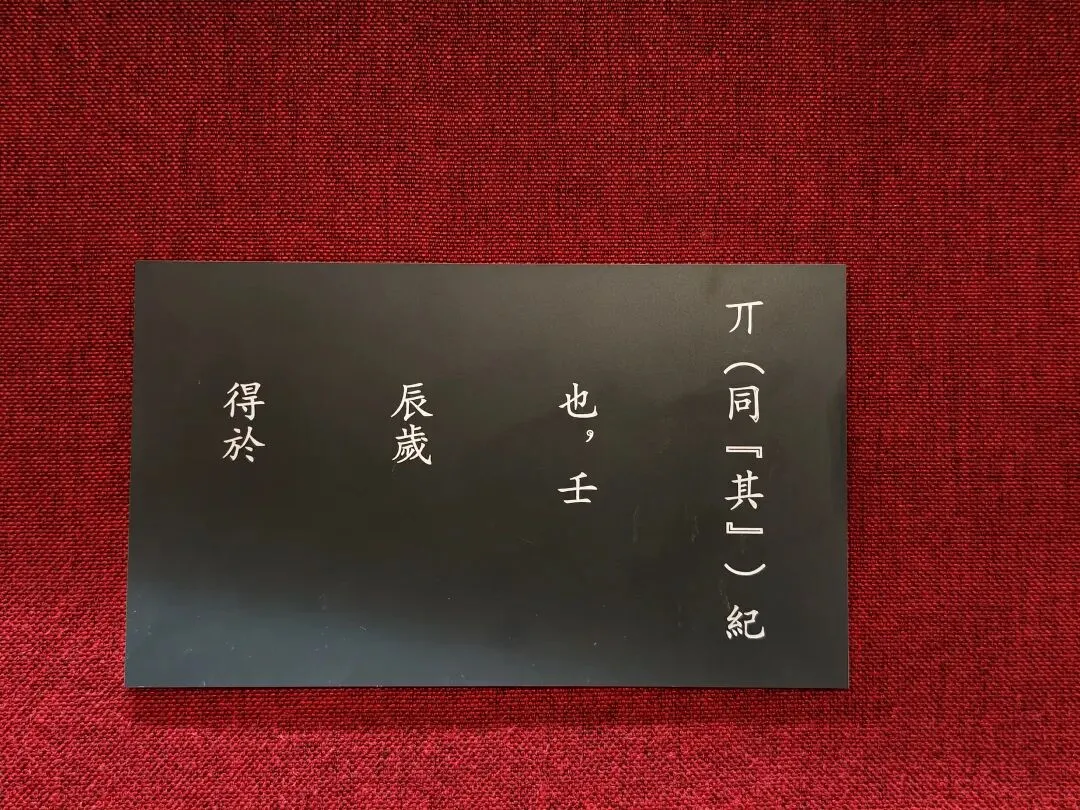 丌（同『其』）紀
也，壬
辰歲
得於